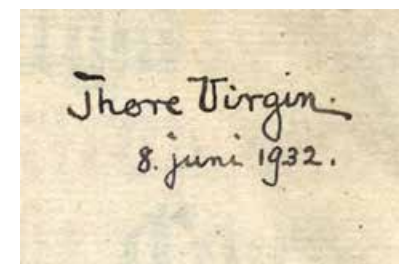 Thore Virgin.
8. juni 1932.